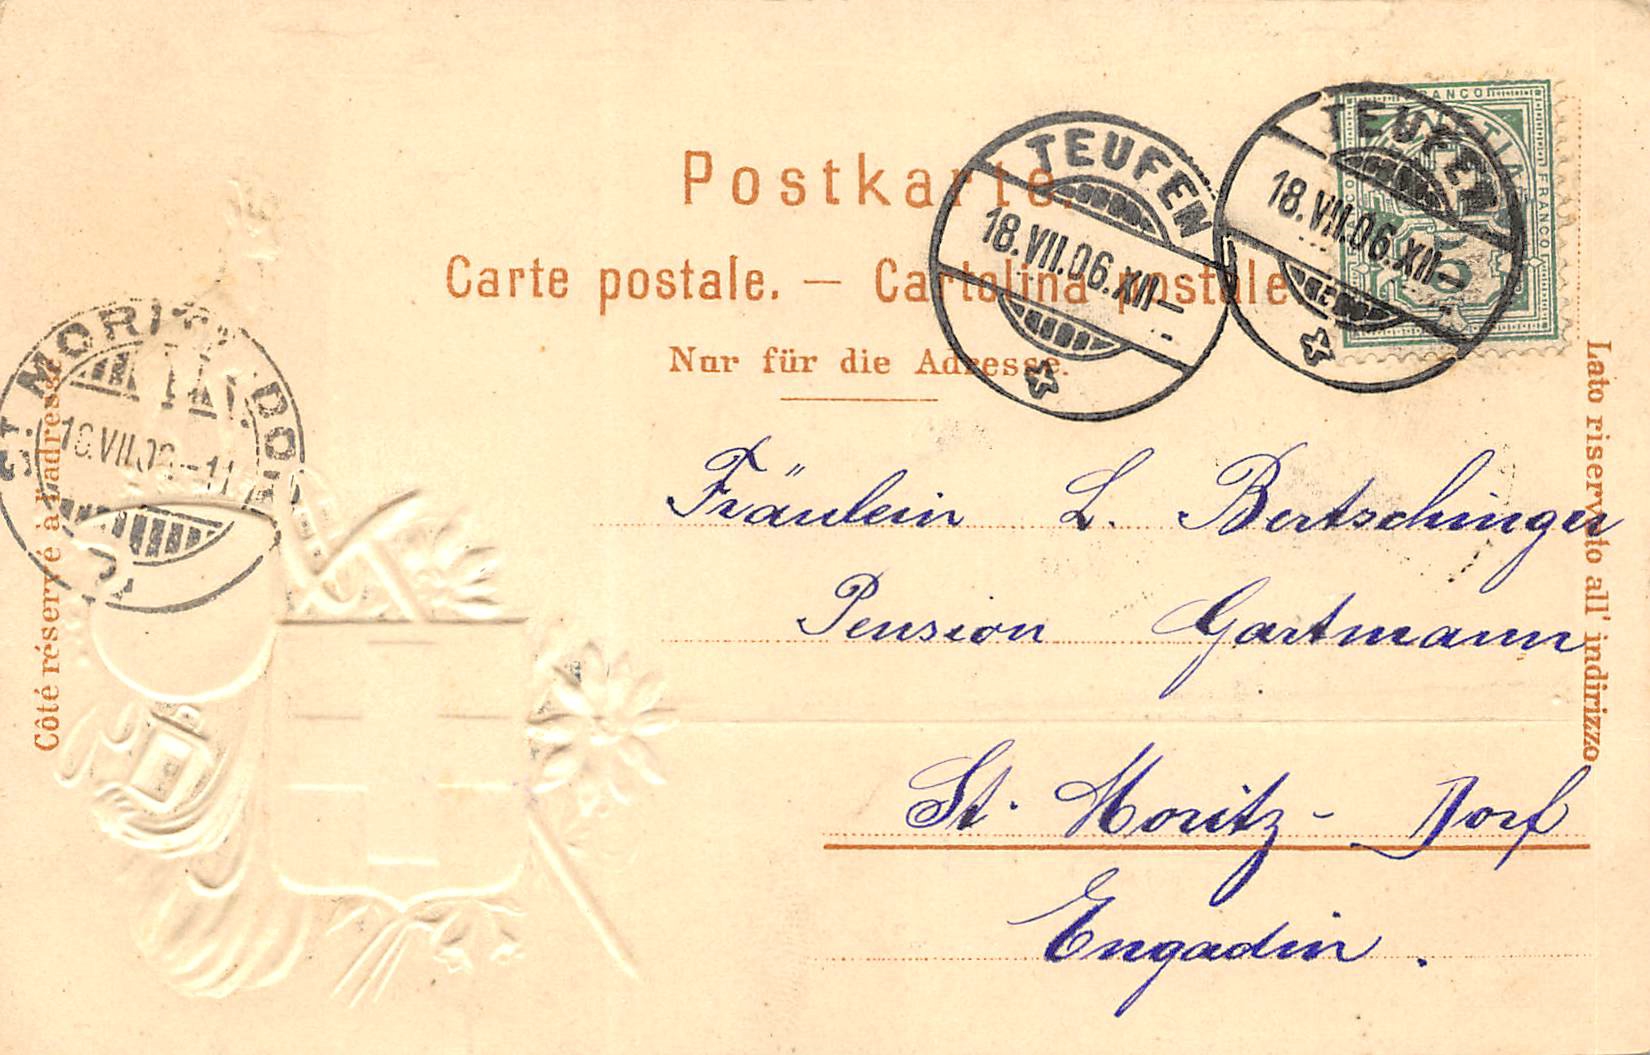 Postkarte.
Carte postale. — Cartolina postale
Nur für die Adresse.
TEUFEN
18.VII.06.XII—
TEUFEN
18.VII.06.XII—
FRANCO
5
ST. MORITZ DORF
VII
Côté réservé à l'adresse
Lato riservato all' indirizzo
Fräulein L. Bertschinger
Pension Gartmann
St. Moritz - Dorf
Engadin.